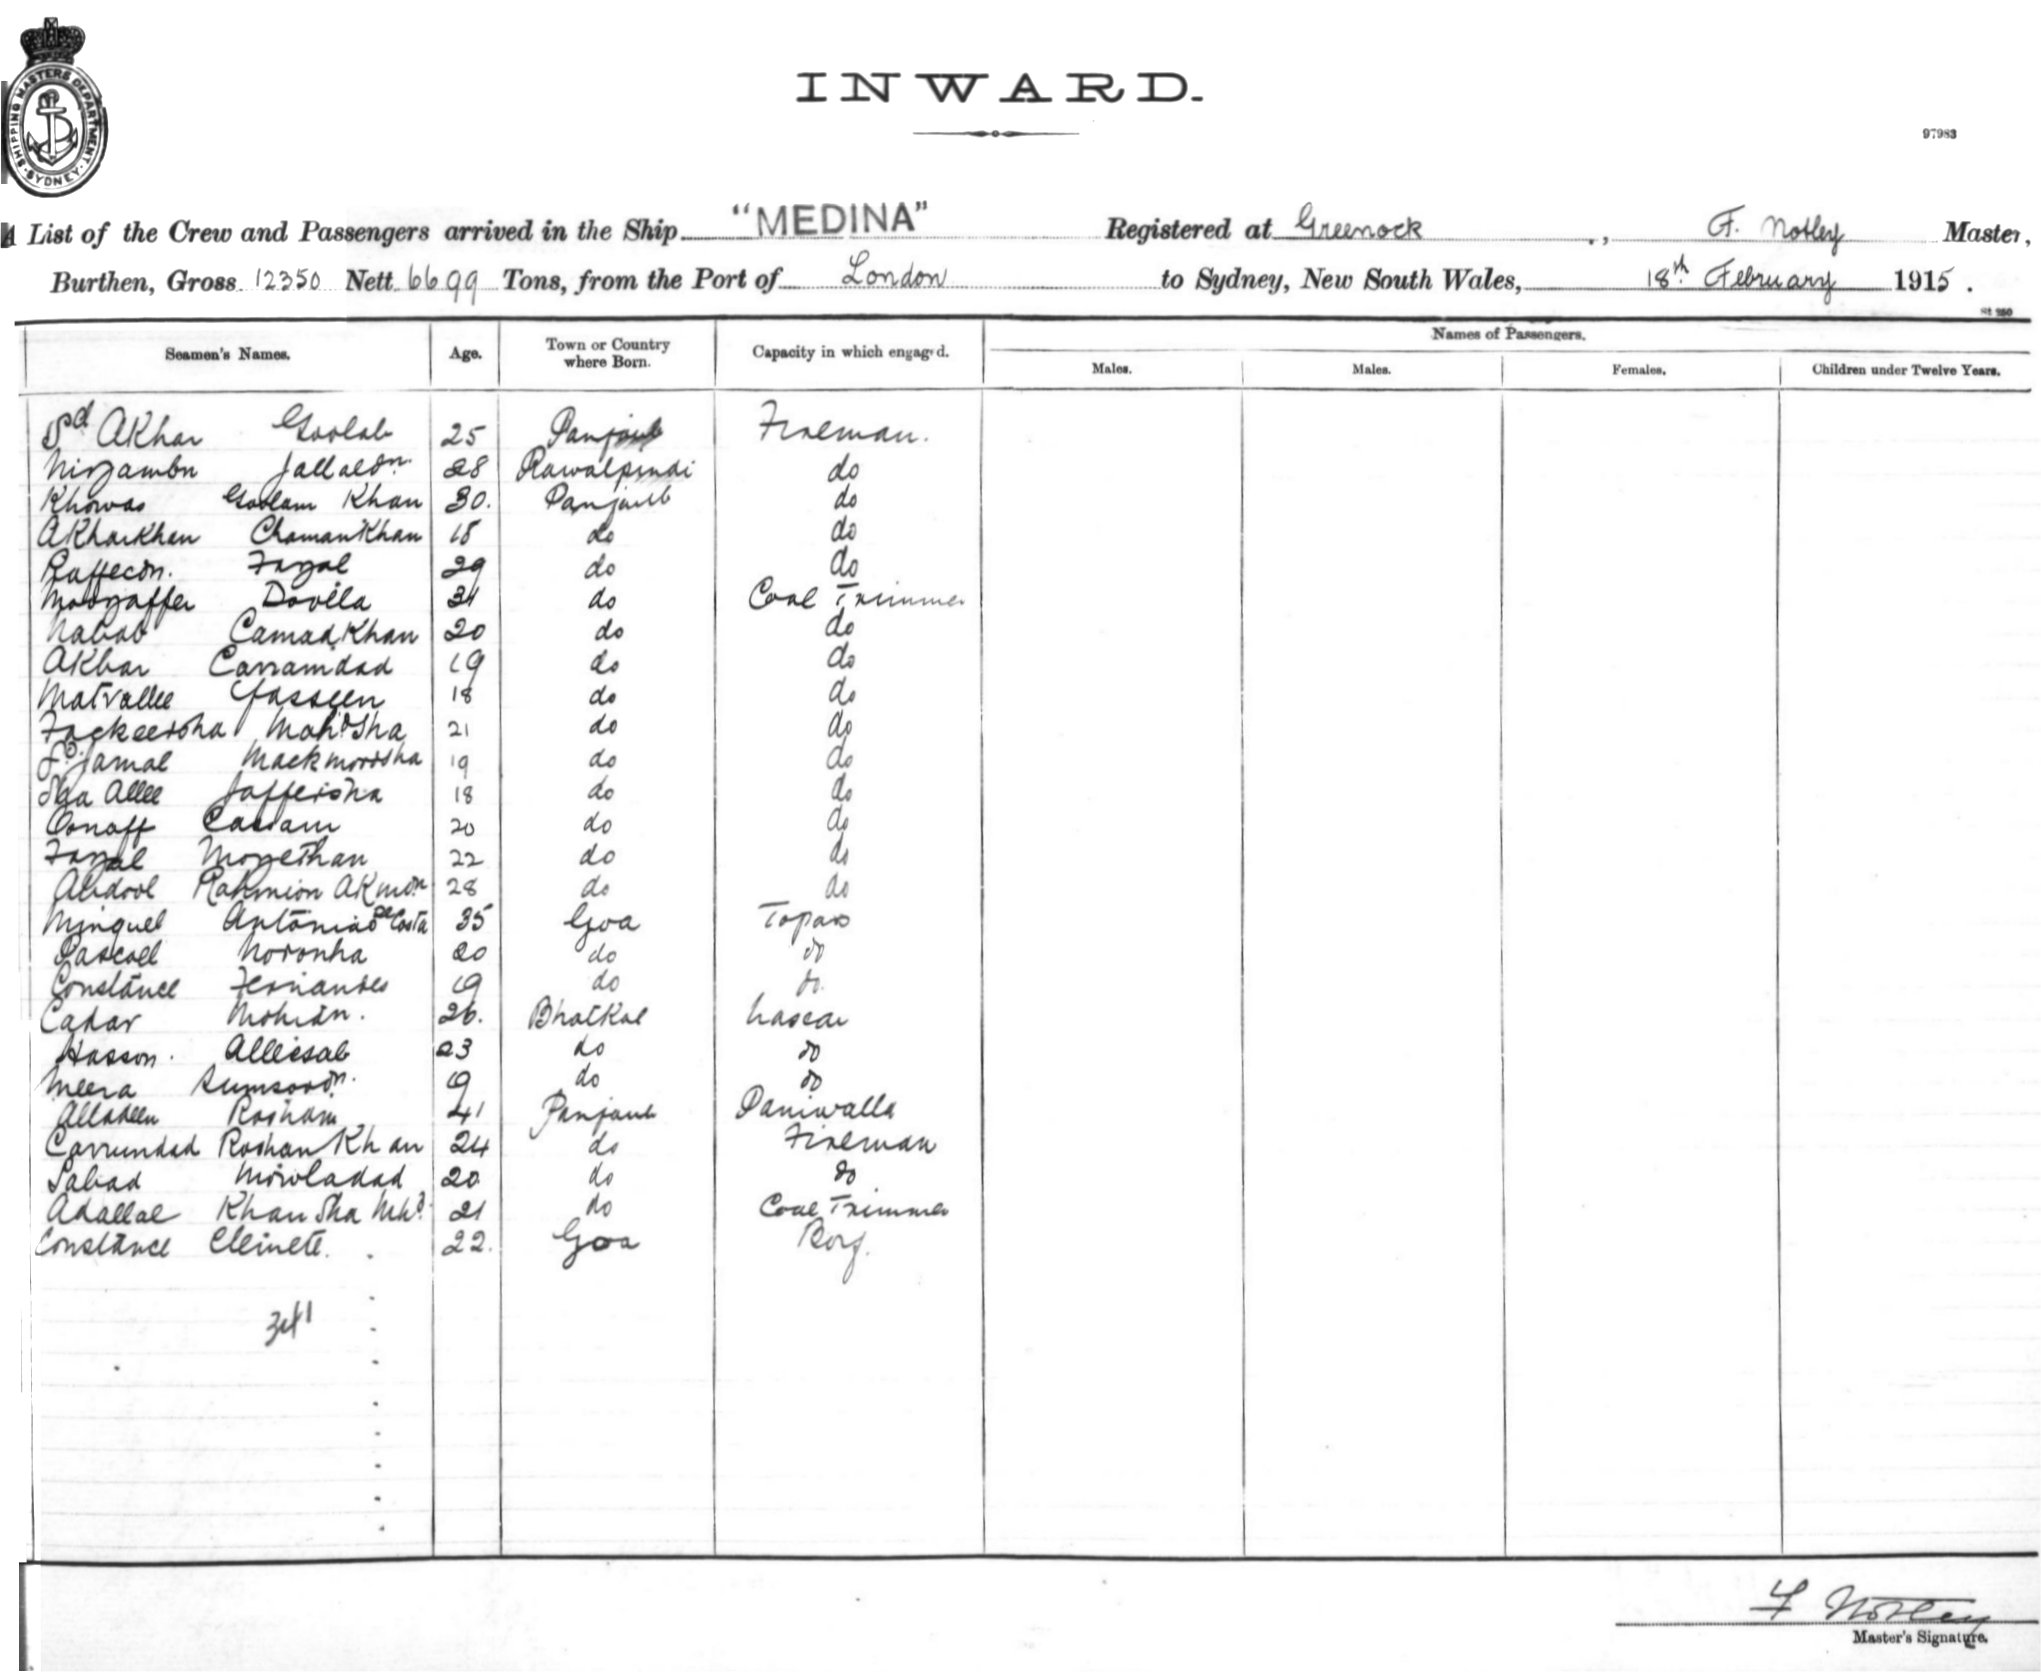 SHIPPING MASTERS DEPARTMENT. SYDNEY.
INWARD.
97983
A List of the Crew and Passengers arrived in the Ship "MEDINA" Registered at Greenock , F. Notley Master,
Burthen, Gross 12350 Nett 6699 Tons, from the Port of London to Sydney, New South Wales, 18th February 1915.
St 250
Seamen's Names. Age. Town or Country where Born. Capacity in which engaged. Names of Passengers.
Males. Males. Females. Children under Twelve Years.
Sd Akhar Goolab 25 Panjaub Fireman.
Nizambn Jallaedn. 28 Rawalpindi do
Khowas Goolam Khan 30. Panjaub do
Akharkhan ChamanKhan 18 do do
Raffeedn. Fazal 29 do do
Moozaffer Dowla 31 do Coal Trimmer
Nabab Camad Khan 20 do do
Akbar Carramdad 19 do do
Matvallee Yasseen 18 do do
Fackeersha MahdSha 21 do do
Jamal Mackmoodsha 19 do do
Sha Allee Jaffersha 18 do do
Oonaff Cassam 20 do do
Fazal Mozethan 22 do do
Abdool Rahmion Akmdn 28 do do
Minguel Antonia de Costa 35 Goa Topas
Pascoll Noronha 20 do do
Constance Fernandes 19 do do.
Cadar Mohidn. 26. Bhatkal Lascar
Hasson. Alleesab 23 do do
Meera Sumsoodn. 19 do do
Alladeen Rosham 41 Panjaub Paniwalla
Carrumdad Roshan Khan 24 do Fireman
Sabad Mowladad 20 do do
Adallal Khan Sha Mhd. 21 do Coal Trimmer
Constance Clemete. 22. Goa Boy.
341
F Notley
Master's Signature.